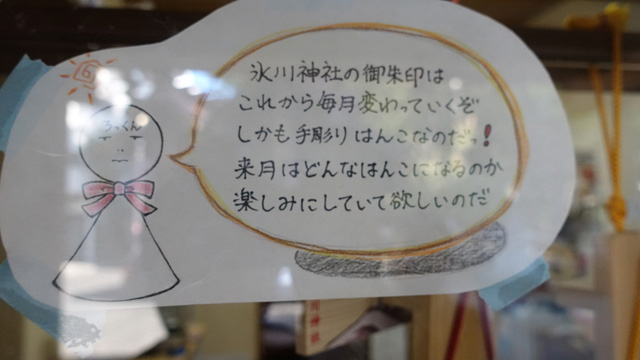 氷川神社の御朱印は
これから毎月変わっていくぞ
しかも手彫りはんこなのだっ!
来月はどんなはんこになるのか
楽しみにしていて欲しいのだ
川神社